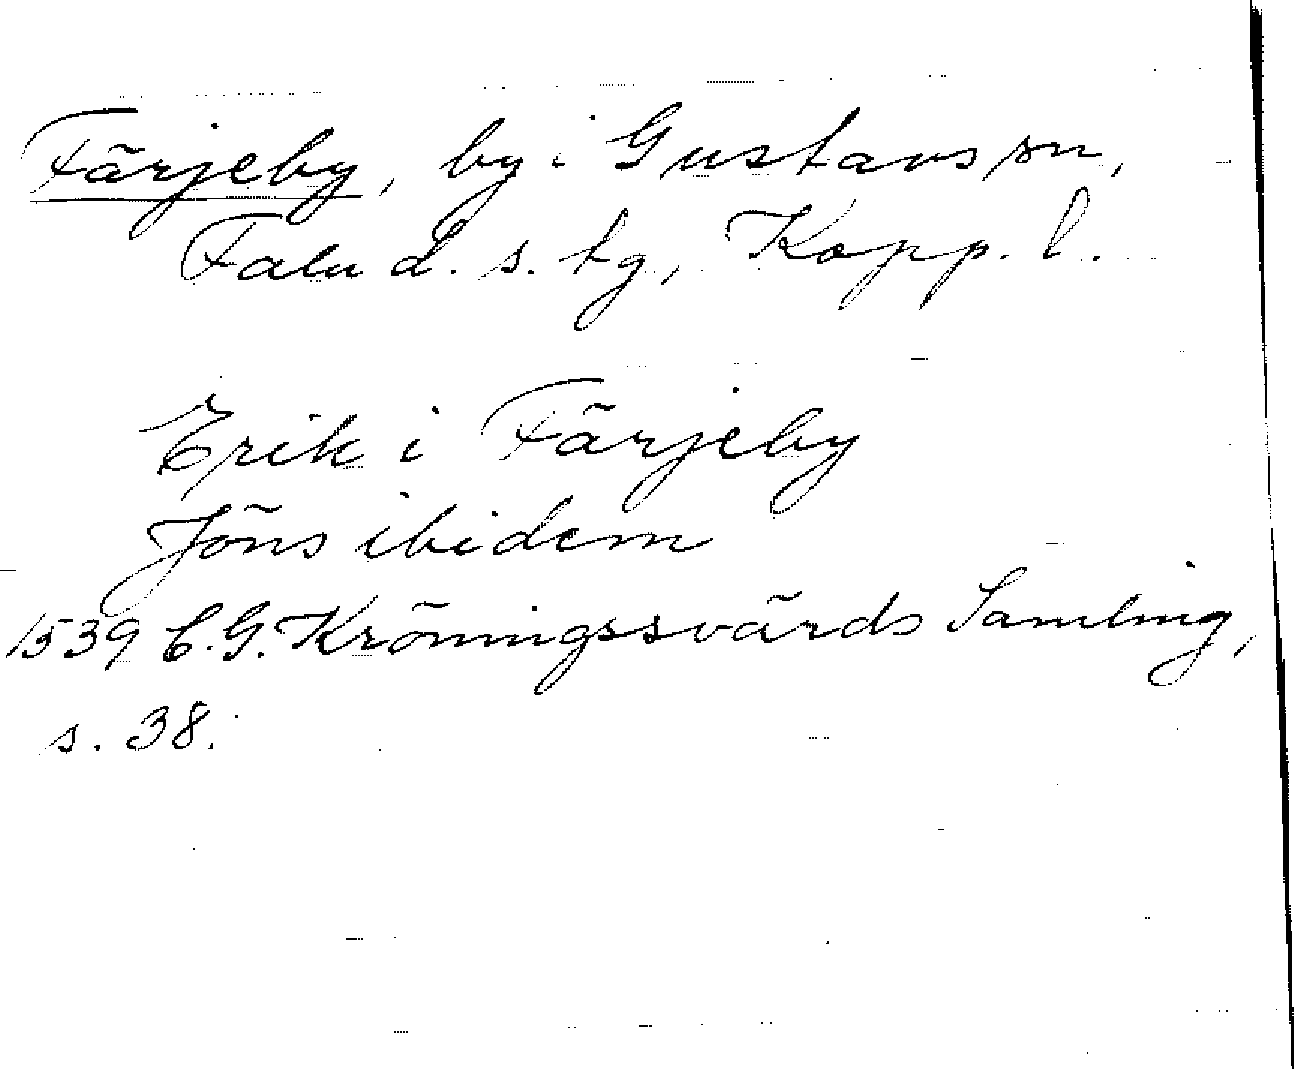 Färjeby, by i Gustavs sn,
Falu d. s. tg, Kopp. l.
Erik i Färjeby
Jöns ibidem
1539 C. G. Kröningssvärds Samling,
s. 38.